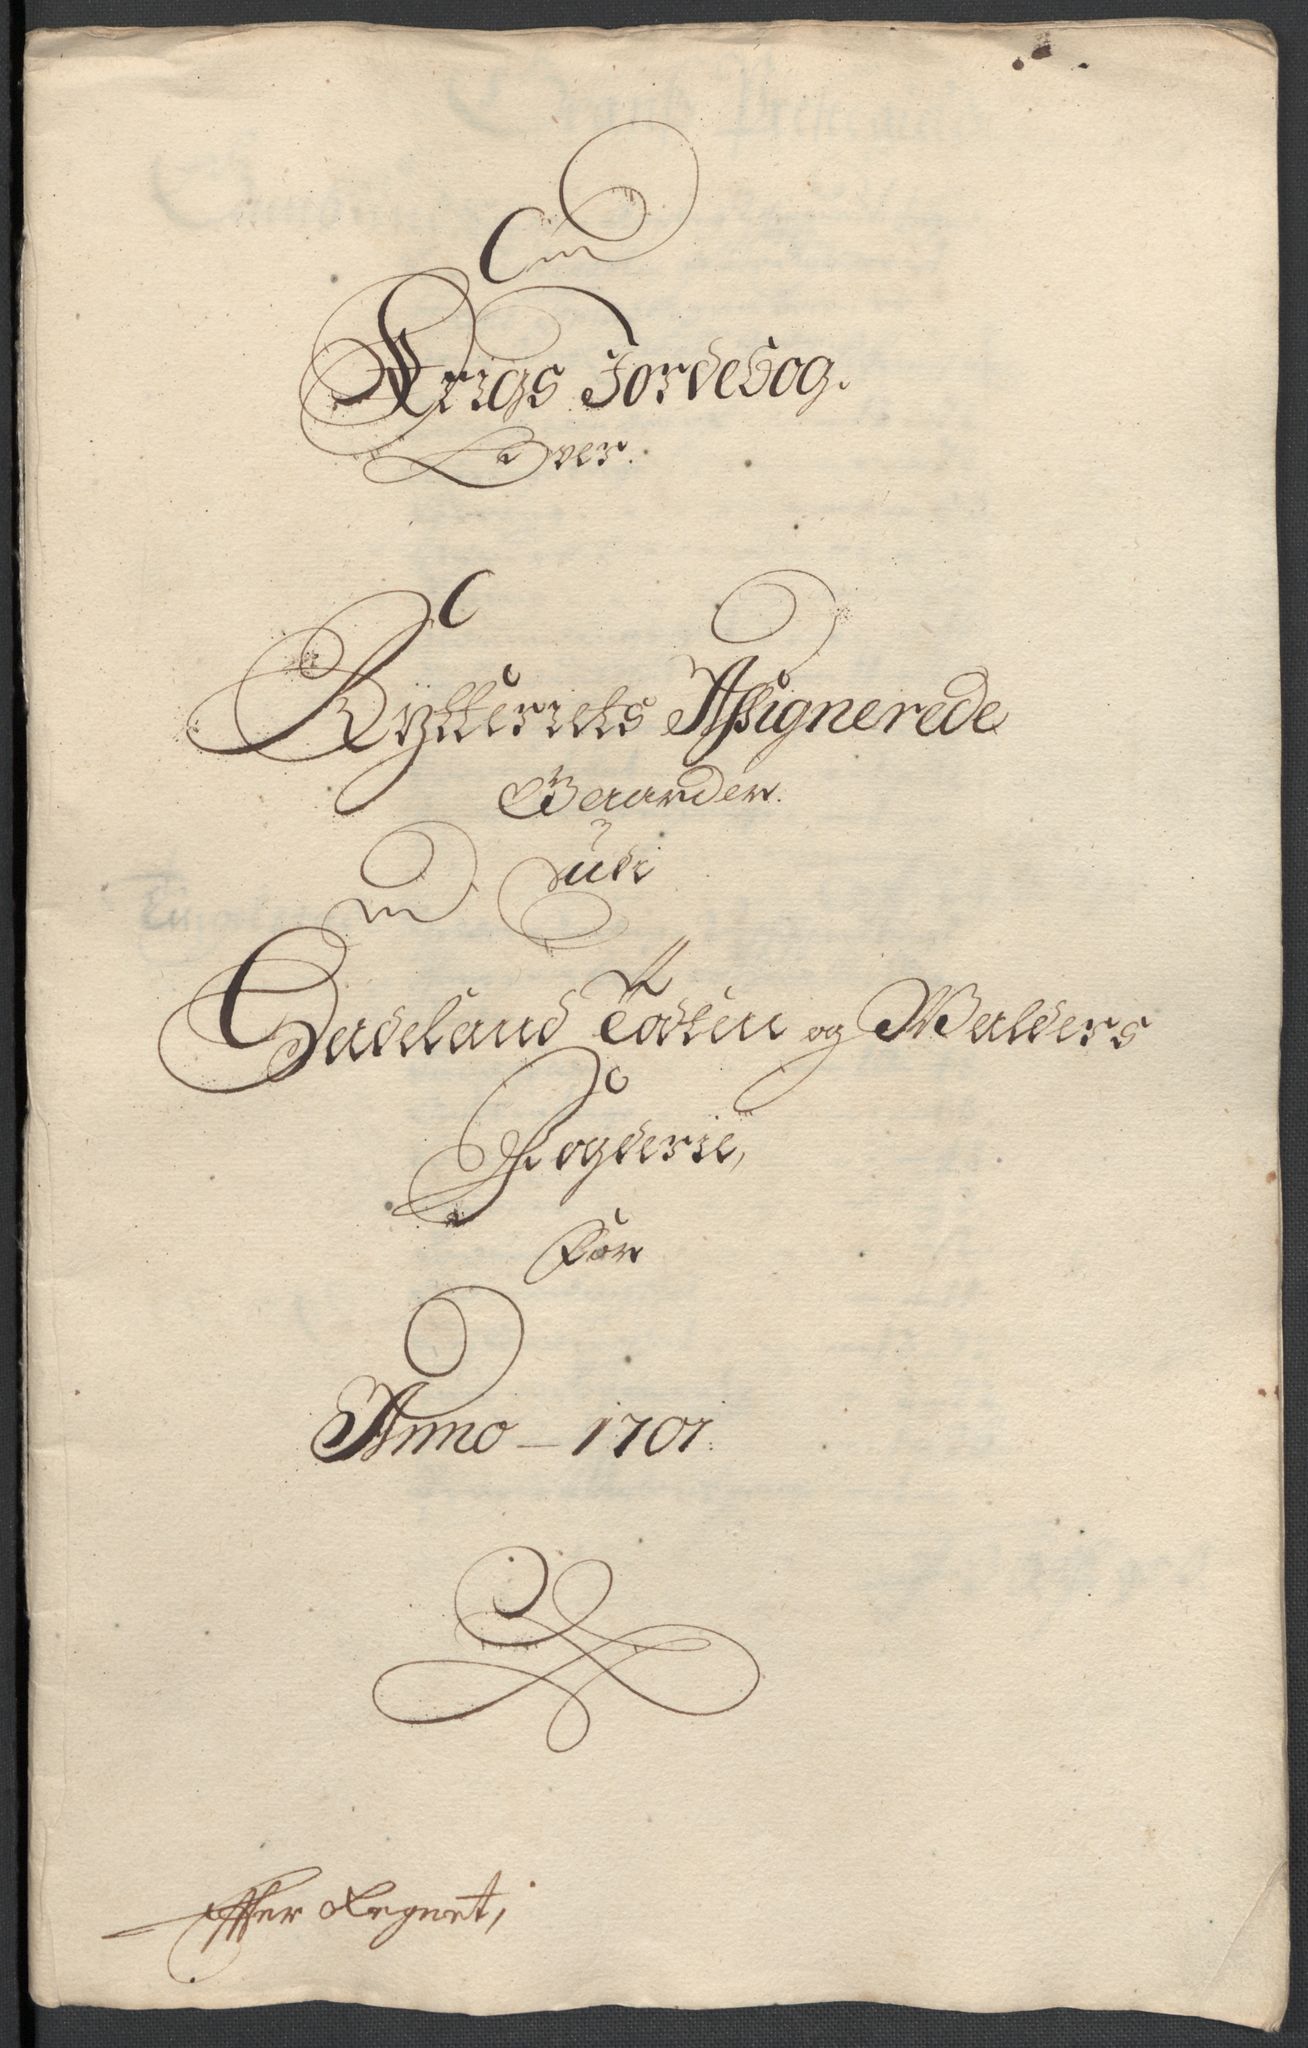 Krigs Jordebog.
Over.
Rÿtteriets Assignerede
Gaarder.
udi
Hadeland Todten og Walders
Fogderie,
For
Anno - 1707.
Effter Regnet,